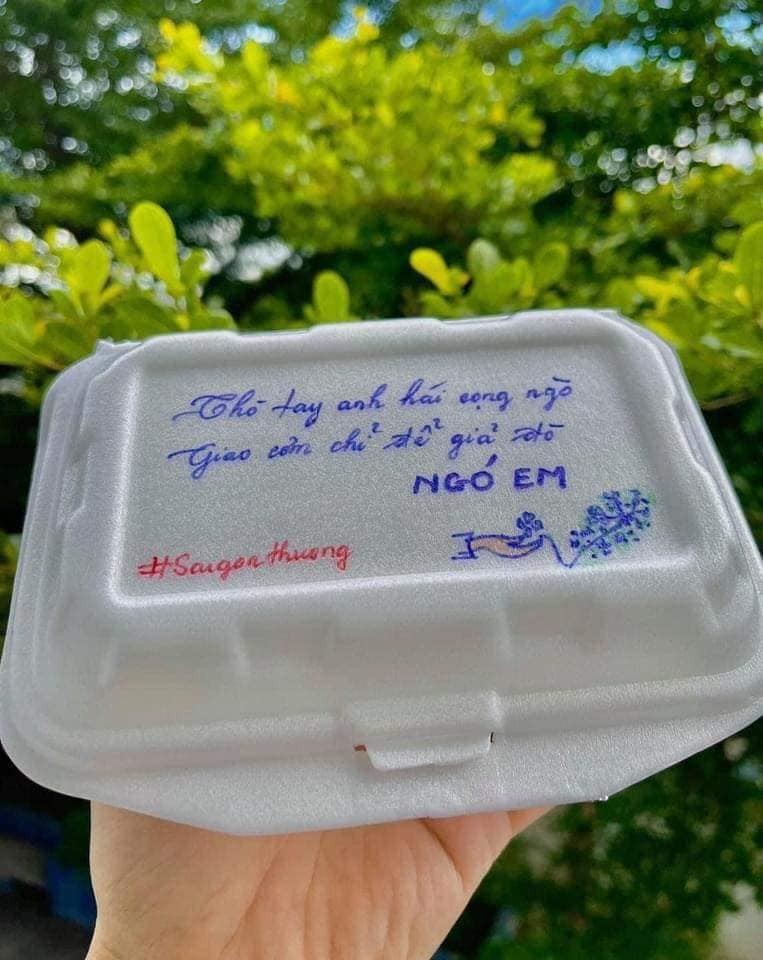 Thò tay anh hái cọng ngò
Giao cơm chỉ để giả đò
NGÓ EM
#Saigonthuong